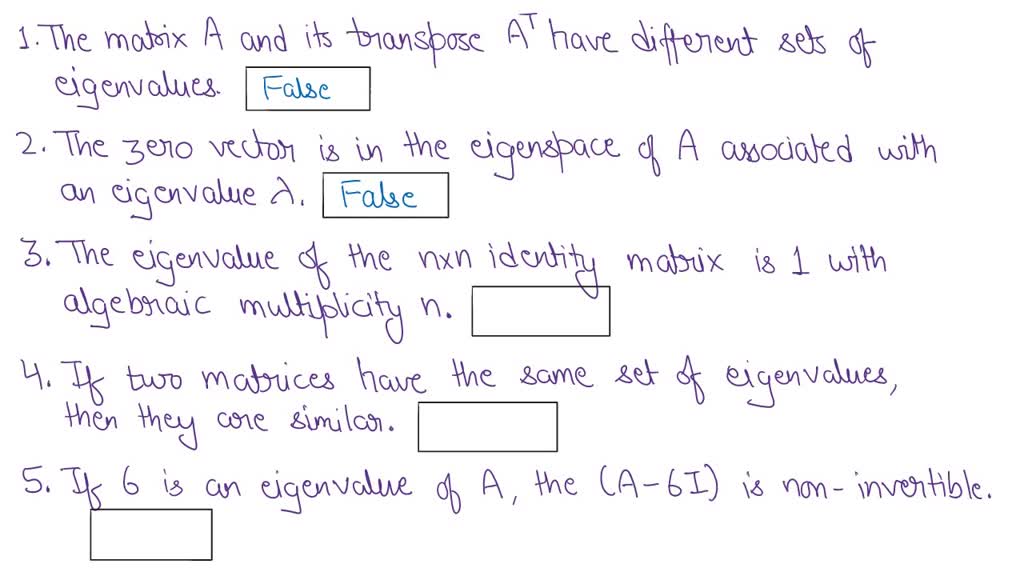 1. The matrix A and its transpose Aᵀ have different sets of
eigenvalues. False
2. The zero vector is in the eigenspace of A associated with
an eigenvalue λ. False
3. The eigenvalue of the nxn identity matrix is 1 with
algebraic multiplicity n.
4. If two matrices have the same set of eigenvalues,
then they are similar.
5. If 6 is an eigenvalue of A, the (A-6I) is non-invertible.